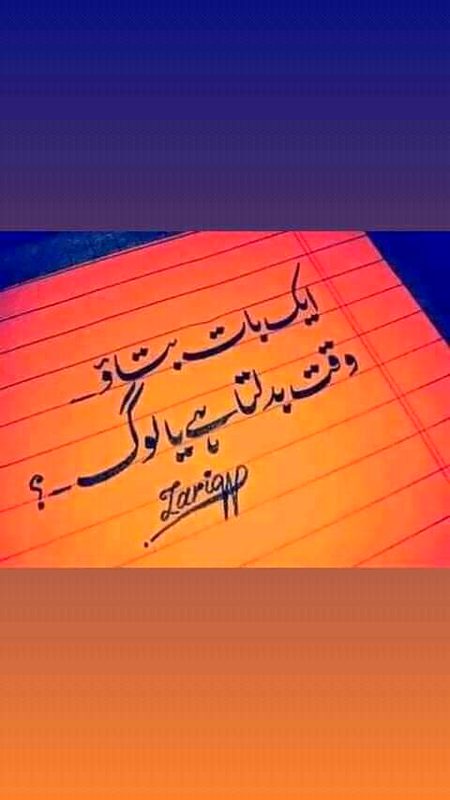 ایک بات بتاؤ۔
وقت بدلتا ہے یا لوگ۔؟